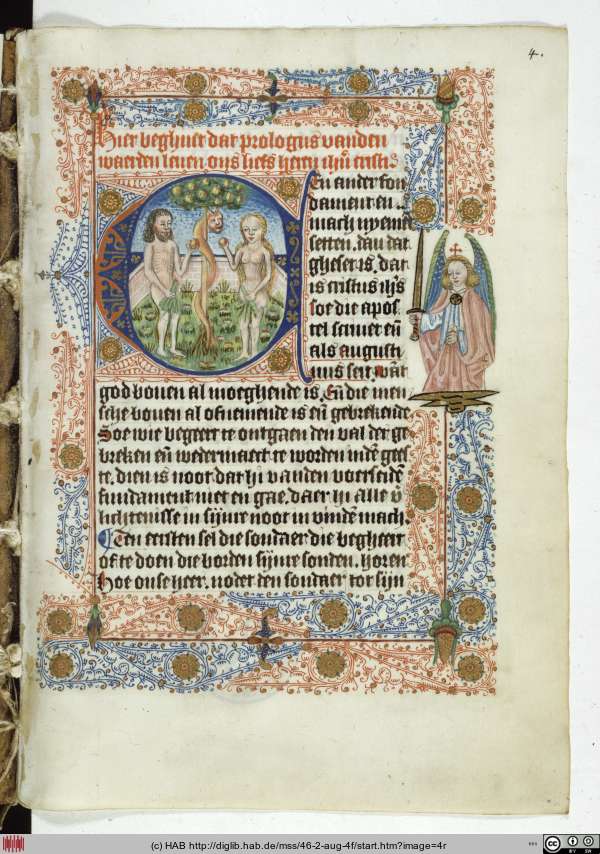 4.
Hier beghint dat prologus vanden
waerden leuen ons liefs heren ihũ cristi
En ander fon
dament en
mach nyemẽt
setten. dan dat
gheset is. dat
is cristus ihs̃
soe die apos
tel scriuet eñ
als augusti
nus seit. Wãt
god bouen al moeghende is. En̄ die men
sche bouen al of nemende is en̄ gebrekende
Soe wie begeert te ontgaen den val der ge
breken en̄ wedermaect te worden indẽ geest
te. dien is noot dat hi vanden voerseidẽ
fundament niet en gae. daer hi alle v̄
lichtenisse in sijnre noot in vindẽ mach
Ten eersten sel die sondaer die begheert
of te doen die borden sijnre sonden. horen
Hoe onse heer. nodet den sondaer tot sijn
(c) HAB http://diglib.hab.de/mss/46-2-aug-4f/start.htm?image=4r
cc
BY SA